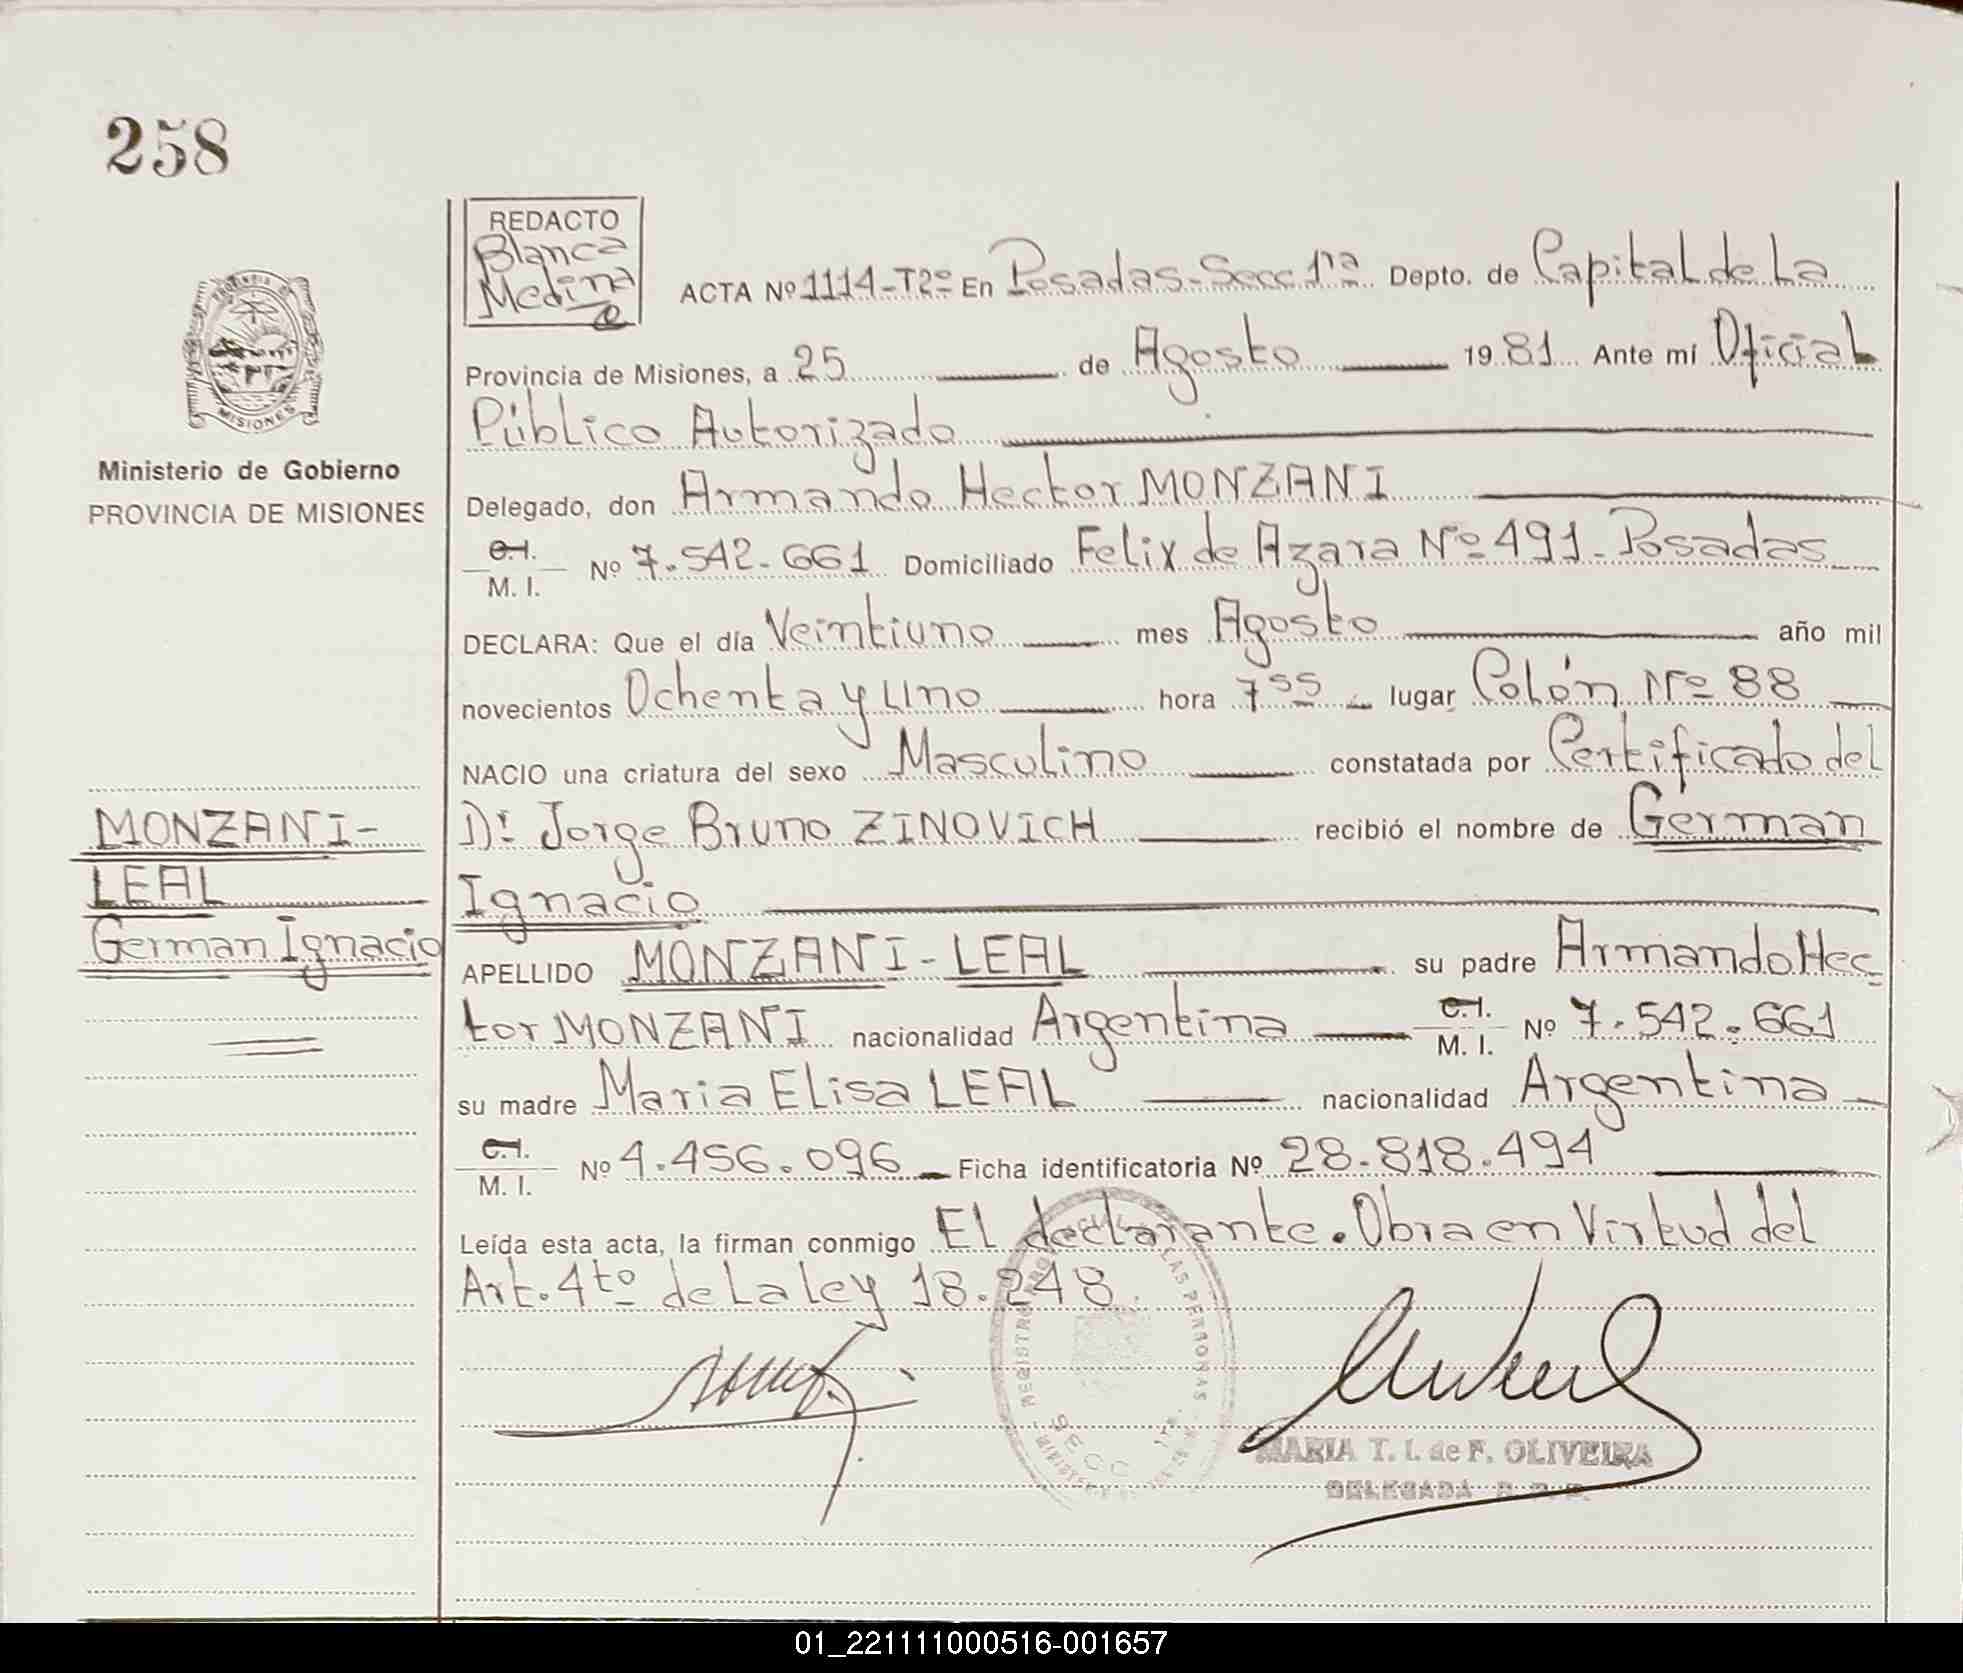 258
REDACTO
Blanca
Medina
ACTA Nº 1114-T2º En Posadas-Secc 1ra Depto. de Capital de La
Provincia de Misiones, a 25 de Agosto 1981 Ante mí Oficial
Público Autorizado
Delegado, don Armando Hector MONZANI
C.I.
M. I. Nº 7.542.661 Domiciliado Felix de Azara Nº 491-Posadas
DECLARA: Que el día Veintiuno mes Agosto año mil
novecientos Ochenta y Uno hora 7 55 lugar Colón Nº 88
NACIO una criatura del sexo Masculino constatada por Certificado del
Dr. Jorge Bruno ZINOVICH recibió el nombre de German
Ignacio
APELLIDO MONZANI-LEAL su padre Armando Hec
tor MONZANI nacionalidad Argentina C.I. M. I. Nº 7.542.661
su madre Maria Elisa LEAL nacionalidad Argentina
C.I.
M. I. Nº 4.456.096 Ficha identificatoria Nº 28.818.494
Leída esta acta, la firman conmigo El declarante. Obra en Virtud del
Art. 4to de La ley 18.248.
MARIA T. I. de F. OLIVEIRA
DELEGADA
REGISTRO LAS PERSONAS
SECC 1ra
MISIONES
Ministerio de Gobierno
PROVINCIA DE MISIONES
MONZANI-
LEAL
German Ignacio
01_221111000516-001657